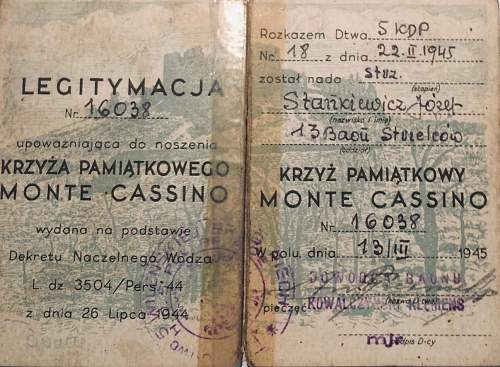 LEGITYMACJA
Nr. 16038
upoważniająca do noszenia
KRZYŻA PAMIĄTKOWEGO
MONTE CASSINO
wydana na podstawie
Dekretu Naczelnego Wodza
L dz 3504/Pers. 44
z dnia 26 Lipca 1944
Rozkazem Dtwa 5 KDP
Nr 18 z dnia 22.II.1945
został nada strz.
(stopień)
Stańkiewicz Józef
(nazwisko i imię)
13 Baon Strzelców
(oddział)
KRZYŻ PAMIĄTKOWY
MONTE CASSINO
Nr. 16038
W polu, dnia 13/III 1945
DOWÓDCA BAONU
KOWALCZEWSKI KLEMENS
pieczęć
mjr.
podpis D-cy